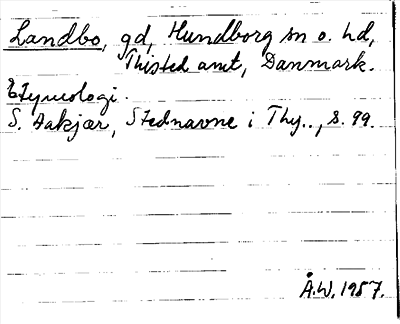 Landbo, gd, Hundborg sn o. hd,
Thisted amt, Danmark.
Etymologi.
S. Aakjær, Stednavne i Thy.., s. 99.
Å.W. 1957.